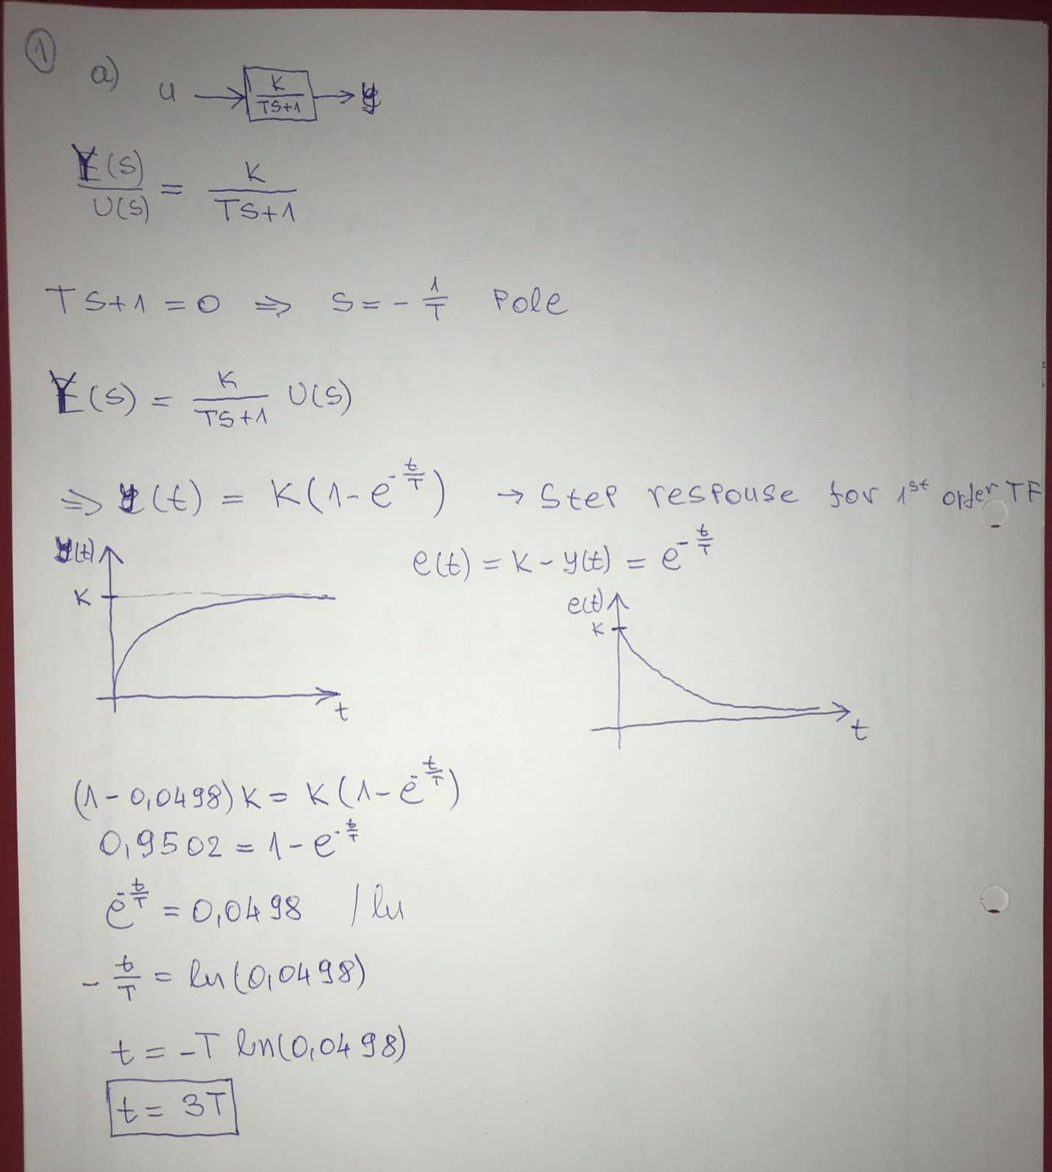 ①
a) u → K/(TS+1) → y
Y(S)/U(S) = K/(TS+1)
TS+1 = 0 ⇒ S = - 1/T Pole
Y(S) = K/(TS+1) U(S)
⇒ y(t) = K(1-e^(-t/T)) → Step respouse for 1st order TF
e(t) = K - y(t) = e^(-t/T)
y(t)
K
t
e(t)
K
t
(1-0,0498) K = K(1-e^(-t/T))
0,9502 = 1-e^(-t/T)
e^(-t/T) = 0,0498 / ln
- t/T = ln(0,0498)
t = -T ln(0,0498)
t = 3T